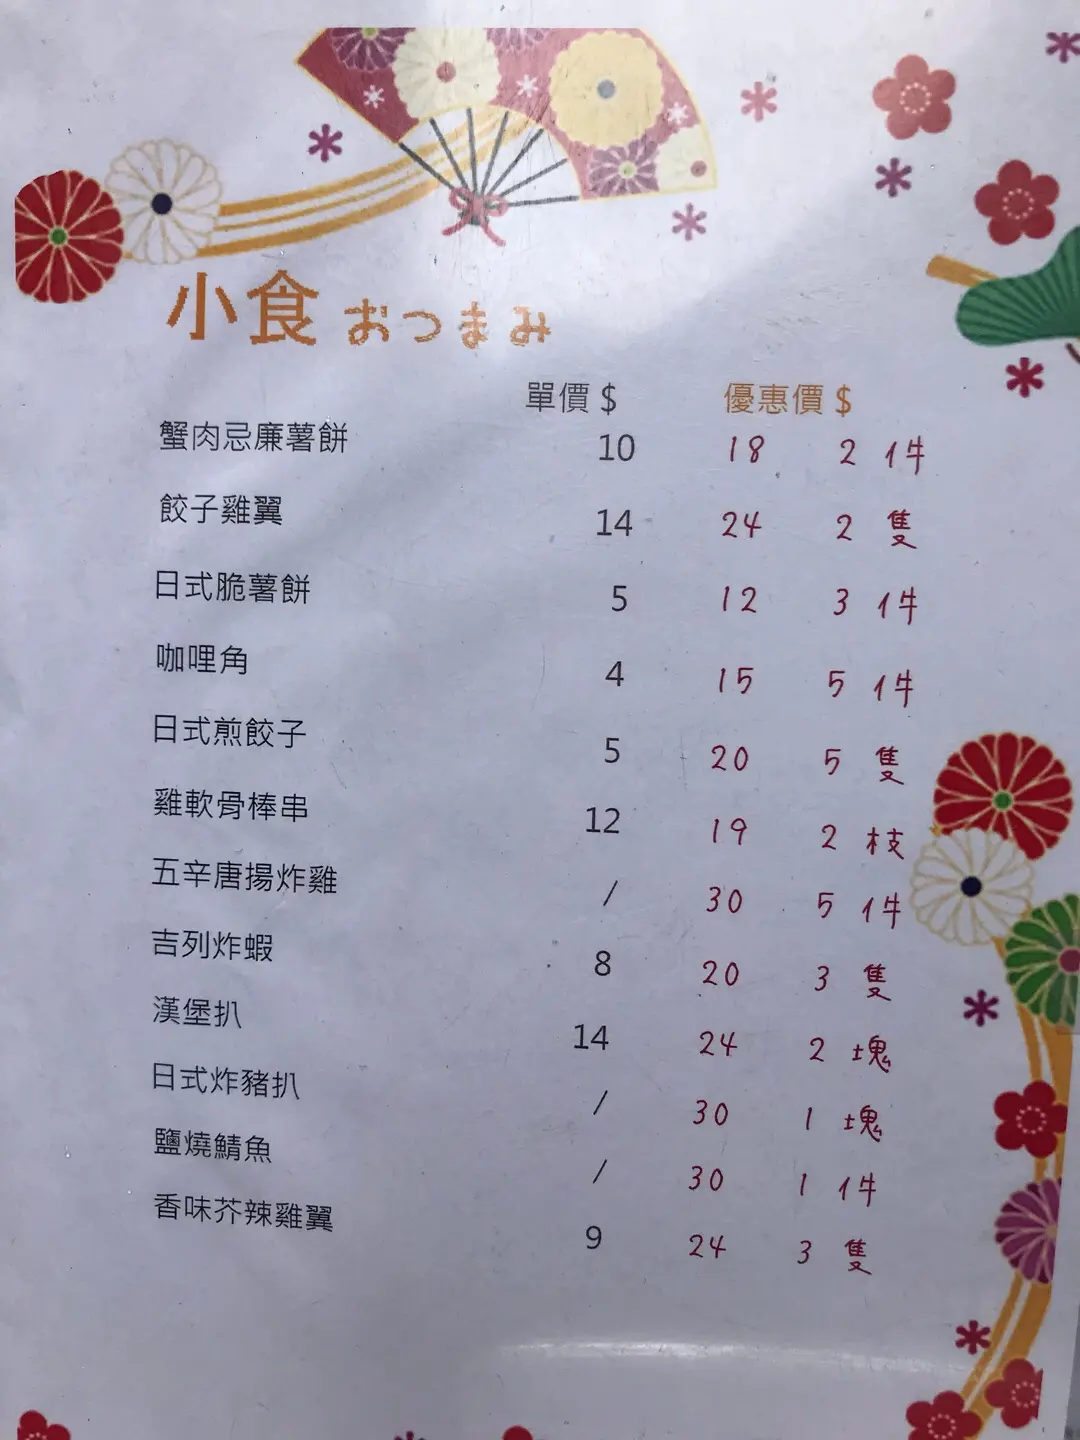 小食 おつまみ
單價 $ 優惠價 $
蟹肉忌廉薯餅 10 18 2 件
餃子雞翼 14 24 2 隻
日式脆薯餅 5 12 3 件
咖哩角 4 15 5 件
日式煎餃子 5 20 5 隻
雞軟骨棒串 12 19 2 枝
五辛唐揚炸雞 / 30 5 件
吉列炸蝦 8 20 3 隻
漢堡扒 14 24 2 塊
日式炸豬扒 / 30 1 塊
鹽燒鯖魚 / 30 1 件
香味芥辣雞翼 9 24 3 隻